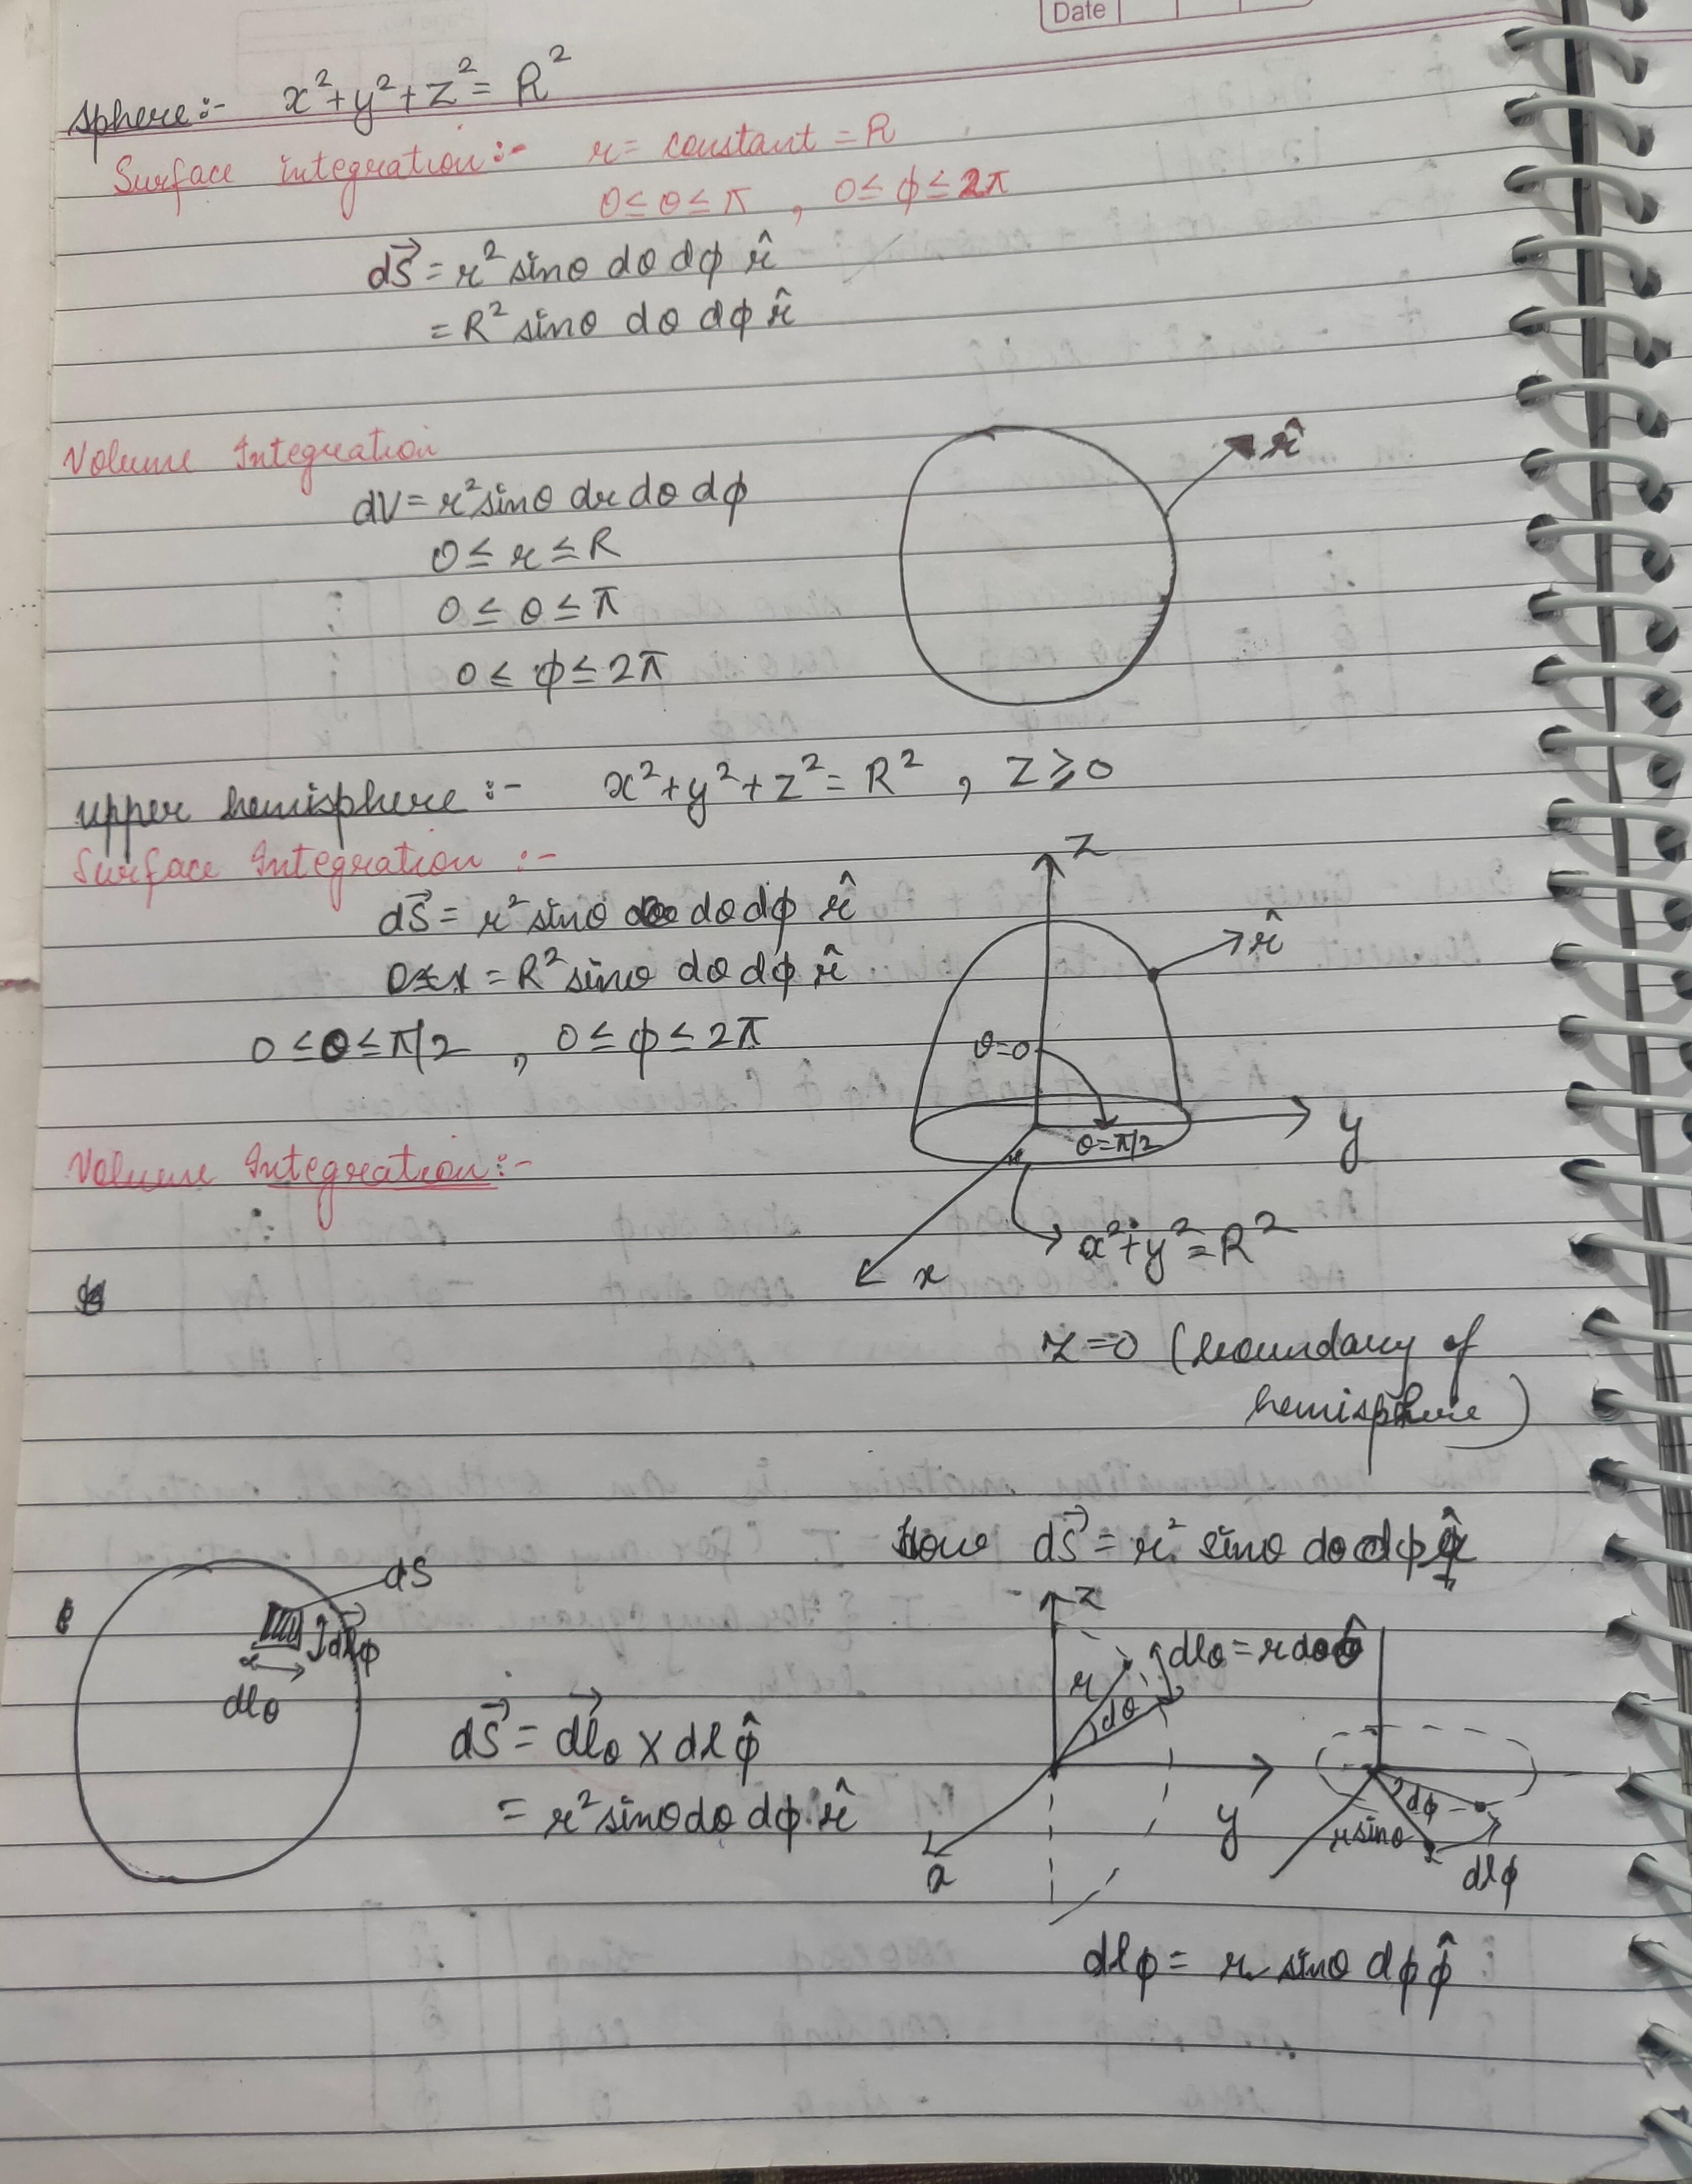 Date
Sphere:- x²+y²+z²= R²
Surface integration:- r= constant = R
0≤θ≤π , 0≤ϕ≤2π
dS⃗ = r² sinθ dθ dϕ r̂
= R² sinθ dθ dϕ r̂
Volume Integration
r̂
dV= r² sinθ dr dθ dϕ
0≤ r ≤R
0≤ θ ≤π
0≤ ϕ≤2π
upper hemisphere:- x²+y²+z²= R² , Z≥0
Surface Integration:-
z
dS⃗ = r² sinθ dθ dϕ r̂
r̂
= R² sinθ dθ dϕ r̂
0≤θ≤π/2 , 0≤ϕ≤2π
θ=0
y
θ=π/2
Volume Integration:-
x²+y²=R²
x
z=0 (boundary of
hemisphere)
How dS⃗ = r² sinθ dθ dϕ r̂
dS
dl⃗ϕ
dlθ
z
r
dθ
dlθ = r dθ θ̂
dS⃗ = dl⃗θ × dlϕ̂
= r² sinθ dθ dϕ r̂
y
x
dϕ
r sinθ
dlϕ
dlϕ = r sinθ dϕ ϕ̂